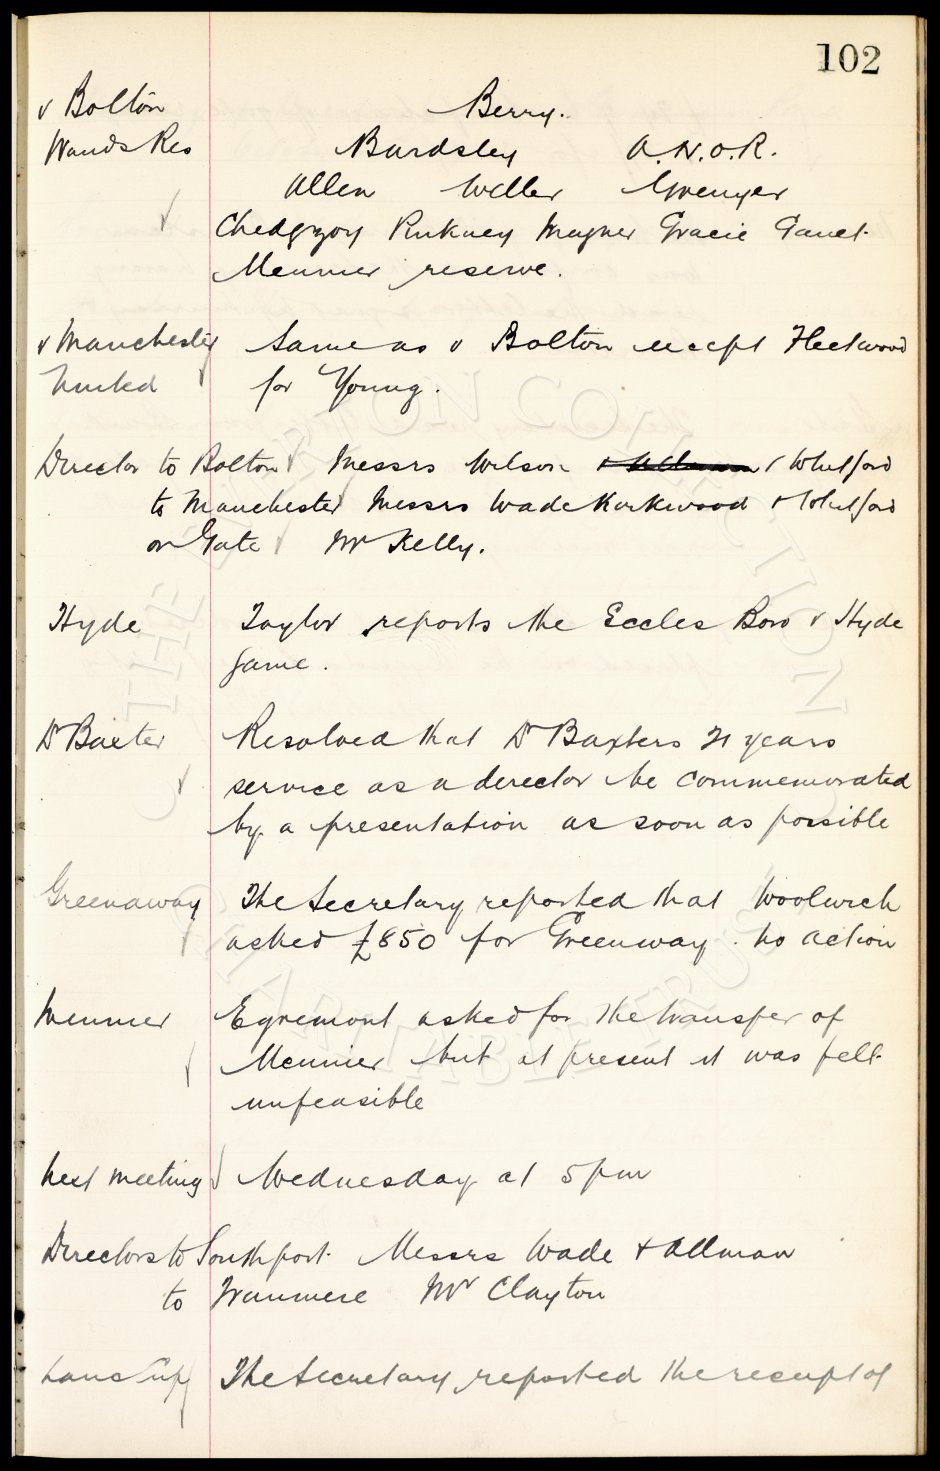 102
v Bolton Berry.
Wands Res Bardsley A.N.O.R.
Allen Weller Grenyer
Chedgzoy Pinkney Magner Gracie Gault
Meunier reserve.
v Manchester Same as v Bolton except Fleetwood
United for Young.
Director to Bolton Messrs Wilson + Whitford
to Manchester Messrs Wade Kirkwood + Whitford
on Gate Mr Kelly.
Hyde Taylor reports the Eccles Boro v Hyde
game.
Dr Baxter Resolved that Dr Baxters 21 years
service as a director be commemorated
by a presentation as soon as possible
Greenaway The Secretary reported that Woolwich
asked £850 for Greenway. No action
Meunier Egremont asked for the transfer of
Meunier but at present it was felt
unfeasible
Next meeting Wednesday at 5 pm
Directors to Southport Messrs Wade + Allman
to Tranmere Mr Clayton
Lanc Cup The Secretary reported the receipt of
THE EVERTON COLLECTION
CHARITABLE TRUST